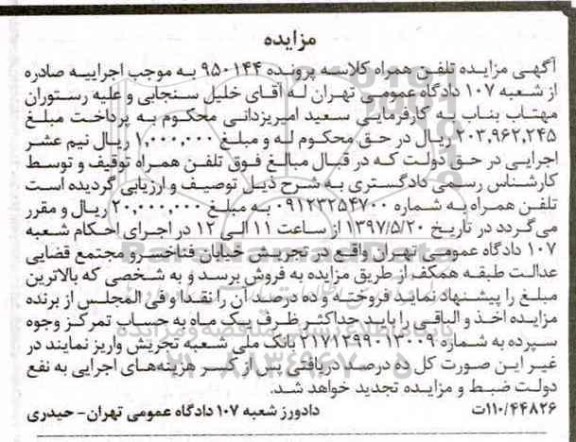 مزایده
آگهی مزایده تلفن همراه کلاسه پرونده ۹۵۰۱۴۴ به موجب اجراییه صادره
از شعبه ۱۰۷ دادگاه عمومی تهران له آقای خلیل سنجابی و علیه رستوران
مهتاب بناب به کارفرمایی سعید امیریزدانی محکوم به پرداخت مبلغ
۲۰۳,۹۶۲,۲۴۵ ریال در حق محکوم له و مبلغ ۱,۰۰۰,۰۰۰ ریال نیم عشر
اجرایی در حق دولت که در قبال مبالغ فوق تلفن همراه توقیف و توسط
کارشناس رسمی دادگستری به شرح ذیل توصیف و ارزیابی گردیده است
تلفن همراه به شماره ۰۹۱۲۳۲۵۴۷۰۰ به مبلغ ۲۰,۰۰۰,۰۰۰ ریال و مقرر
می‌گردد در تاریخ ۱۳۹۷/۵/۲۰ از ساعت ۱۱ الی ۱۲ در اجرای احکام شعبه
۱۰۷ دادگاه عمومی تهران واقع در تجریش خیابان فناخسرو مجتمع قضایی
عدالت طبقه همکف از طریق مزایده به فروش برسد و به شخصی که بالاترین
مبلغ را پیشنهاد نماید فروخته و ده درصد آن را نقدا و فی المجلس از برنده
مزایده اخذ و الباقی را باید حداکثر ظرف یک ماه به حساب تمرکز وجوه
سپرده به شماره ۲۱۷۱۲۹۹۰۱۳۰۰۹ بانک ملی شعبه تجریش واریز نمایند در
غیر این صورت کل ده درصد دریافتی پس از کسر هزینه‌های اجرایی به نفع
دولت ضبط و مزایده تجدید خواهد شد.
۱۱۰/۴۴۸۲۶ت دادورز شعبه ۱۰۷ دادگاه عمومی تهران- حیدری